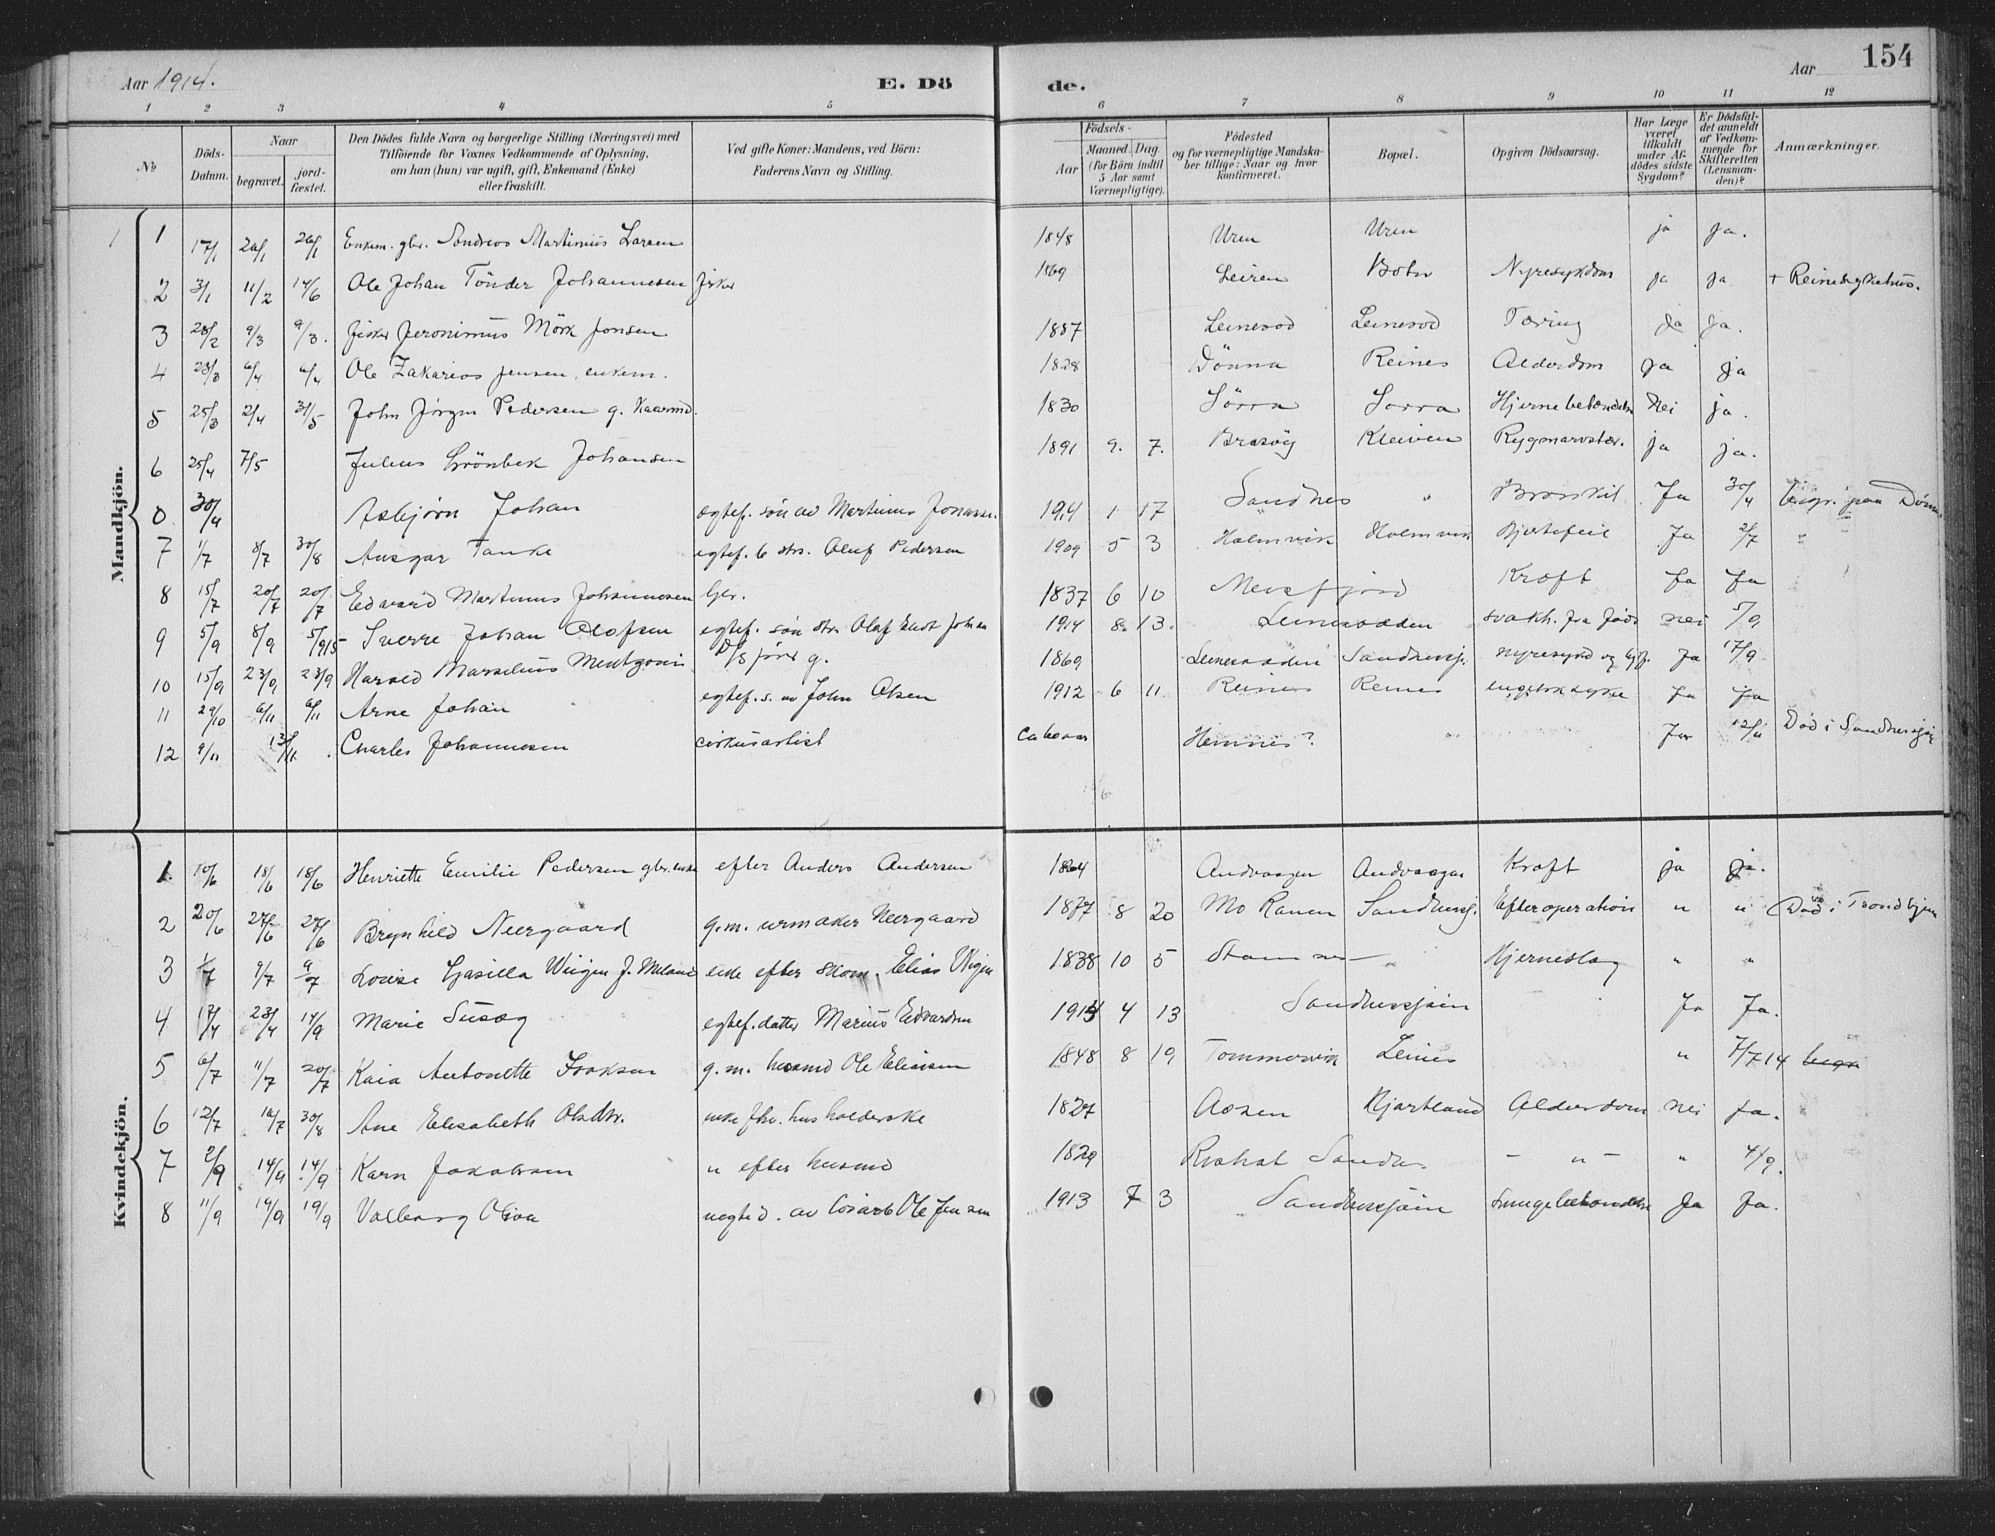 Aar 1914. E. Dö
de. Aar 154
1 2 3 4 5
6 7 8 9 10 11 12
No
Döds-Datum.
Naar
begravet.
jord-fæstet.
Den Dödes fulde Navn og borgerlige Stilling (Næringsvei) med
Tilföiende for Voxnes Vedkommende af Oplysning,
om han (hun) var ugift, gift, Enkemand (Enke)
eller fraskilt.
Ved gifte Koner: Mandens, ved Börn:
Faderens Navn og Stilling.
Födsels-
Aar
Maaned. Dag.
(for Börn indtil
5 Aar samt
Værnepligtige).
Födested
og for værnepligtige Mandska-
ber tillige: Naar og hvor
konfirmeret.
Bopæl.
Opgiven Dödsaarsag.
Har Læge
været
tilkaldt
under Af-
dödes sidste
Sygdom?
Er Dödsfal-
det anmeldt
af Vedkom-
mende for
Skifteretten
(Lensman-
den)?
Anmærkninger.
Mandkjön.
1 17/1 26/1 26/1 Enkem. gbr. Andreas Martinius Larsen 1848 Uren Uren ja ja.
2 3/1 11/2 14/6 Ole Johan Tönder Johannesen fisker 1869 Leiren Botn Nyresykdom ja ja + Reines sykehus.
3 28/2 9/3 9/3. fisker Jeronimus Mörk Jonsen 1887 Leinesod Leinesod Tæring ja ja.
4 28/3 6/4 6/4 Ole Zakarias Jensen, enkem. 1828 Dönna Reines Alderdom ja ja
5 25/3 2/4 31/5 John Jörgen Pedersen g. 1830 Sörra Sorra Hjernebetændelse Nei ja.
6 25/4 7/5 Julius Grönbek Johansen 1891 9. 7. Brasöy Kleiven Rygmarvstær. ja ja.
0 30/4 Asbjörn Johan ægtef. sön av Martinus 1914 1 17 Sandnes " Bronkit Ja 30/4 begr. paa Dönnes
7 1/7 8/7 30/8 Ansgar Tanke egtef. b strs. Oluf Pedersen 1909 5 3 Holmvik Holmvik Hjertefeil Ja 2/7 "
8 15/7 20/7 20/7 Edvard Martinus Johannesen Gbr. 1837 6 10 Meisfjord Kræft Ja Ja
9 5/9 8/9 5/9 15 Sverre Johan Olofsen egtef. sön str. Olaf Johan 1914 8. 13. Leinesodden svakh. fra föds nei 5/9
10 15/9 23/9 23/9 Harald Marselius g. 1869 Leinesodden Sandnessj. nyresykd og Ja 17/9
11 29/10 6/11 6/11 Arne Johan egtef. s. av John Olsen 1912 6 11 Reines Reines engelsk syke Ja Ja
12 9/11 13/11. Charles Johannesen cirkusartist Ca 60 aar Hemnes? " Ja 12/11 Död i Sandnessjöen
Kvindekjön.
1 10/6 18/6 18/6 Henriette Emilie Pedersen gbr. enke efter Anders Andersen 1864 Andvaagen Andvaagen Kræft ja ja.
2 20/6 27/6 27/6 Brynhild Neergaard g.m. urmaker Neergaard 1877 8 20 Mo Ranen Sandnessj. Efter operation " " Död i Trondhjem
3 1/7 9/7 9/7 Lovise Wiigen f. enke efter skom. Elias Wigen 1838 10 5 Stamnes — " Hjerneslag " "
4 17/4 23/4 14/9 Marie Susag egtef. datter Marius Edvardsen 1914 4 13 Sandnessjöen Ja Ja.
5 6/7 11/7 20/7 Kaia Antonette Isaksen g.m. husmd Ole Eliassen 1848 8 19 Tommervik Leines " 7/7 14 begr.
6 12/7 16/7 30/8 Ane Elisabeth Olsdtr. enke fhv. husholderske 1827 Aasen Hjartland Alderdom nei ja.
7 2/9 14/9 14/9 Karn Jakobsen " efter husmd 1829 Sandnes — " — " 4/9.
8 11/9 19/9 19/9 Valborg Oliva uegted. av Ole Jensen 1913 7 3 Sandnessjöen Lungebetændelse Ja Ja.